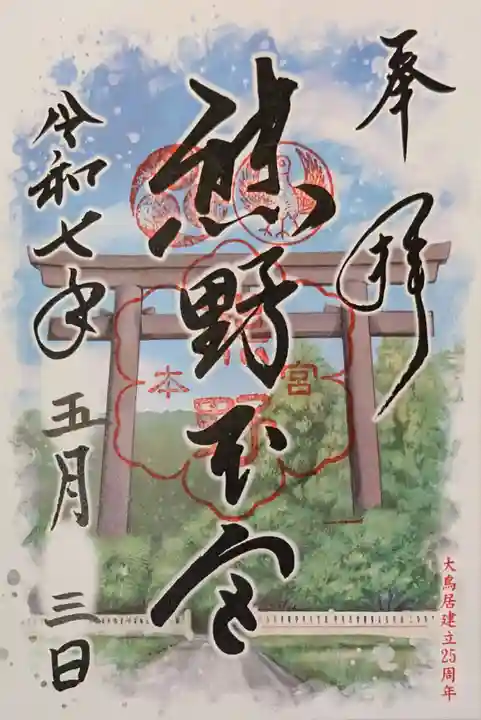 奉拝
熊野本宮
熊野
本宮
令和七年五月三日
大鳥居建立25周年